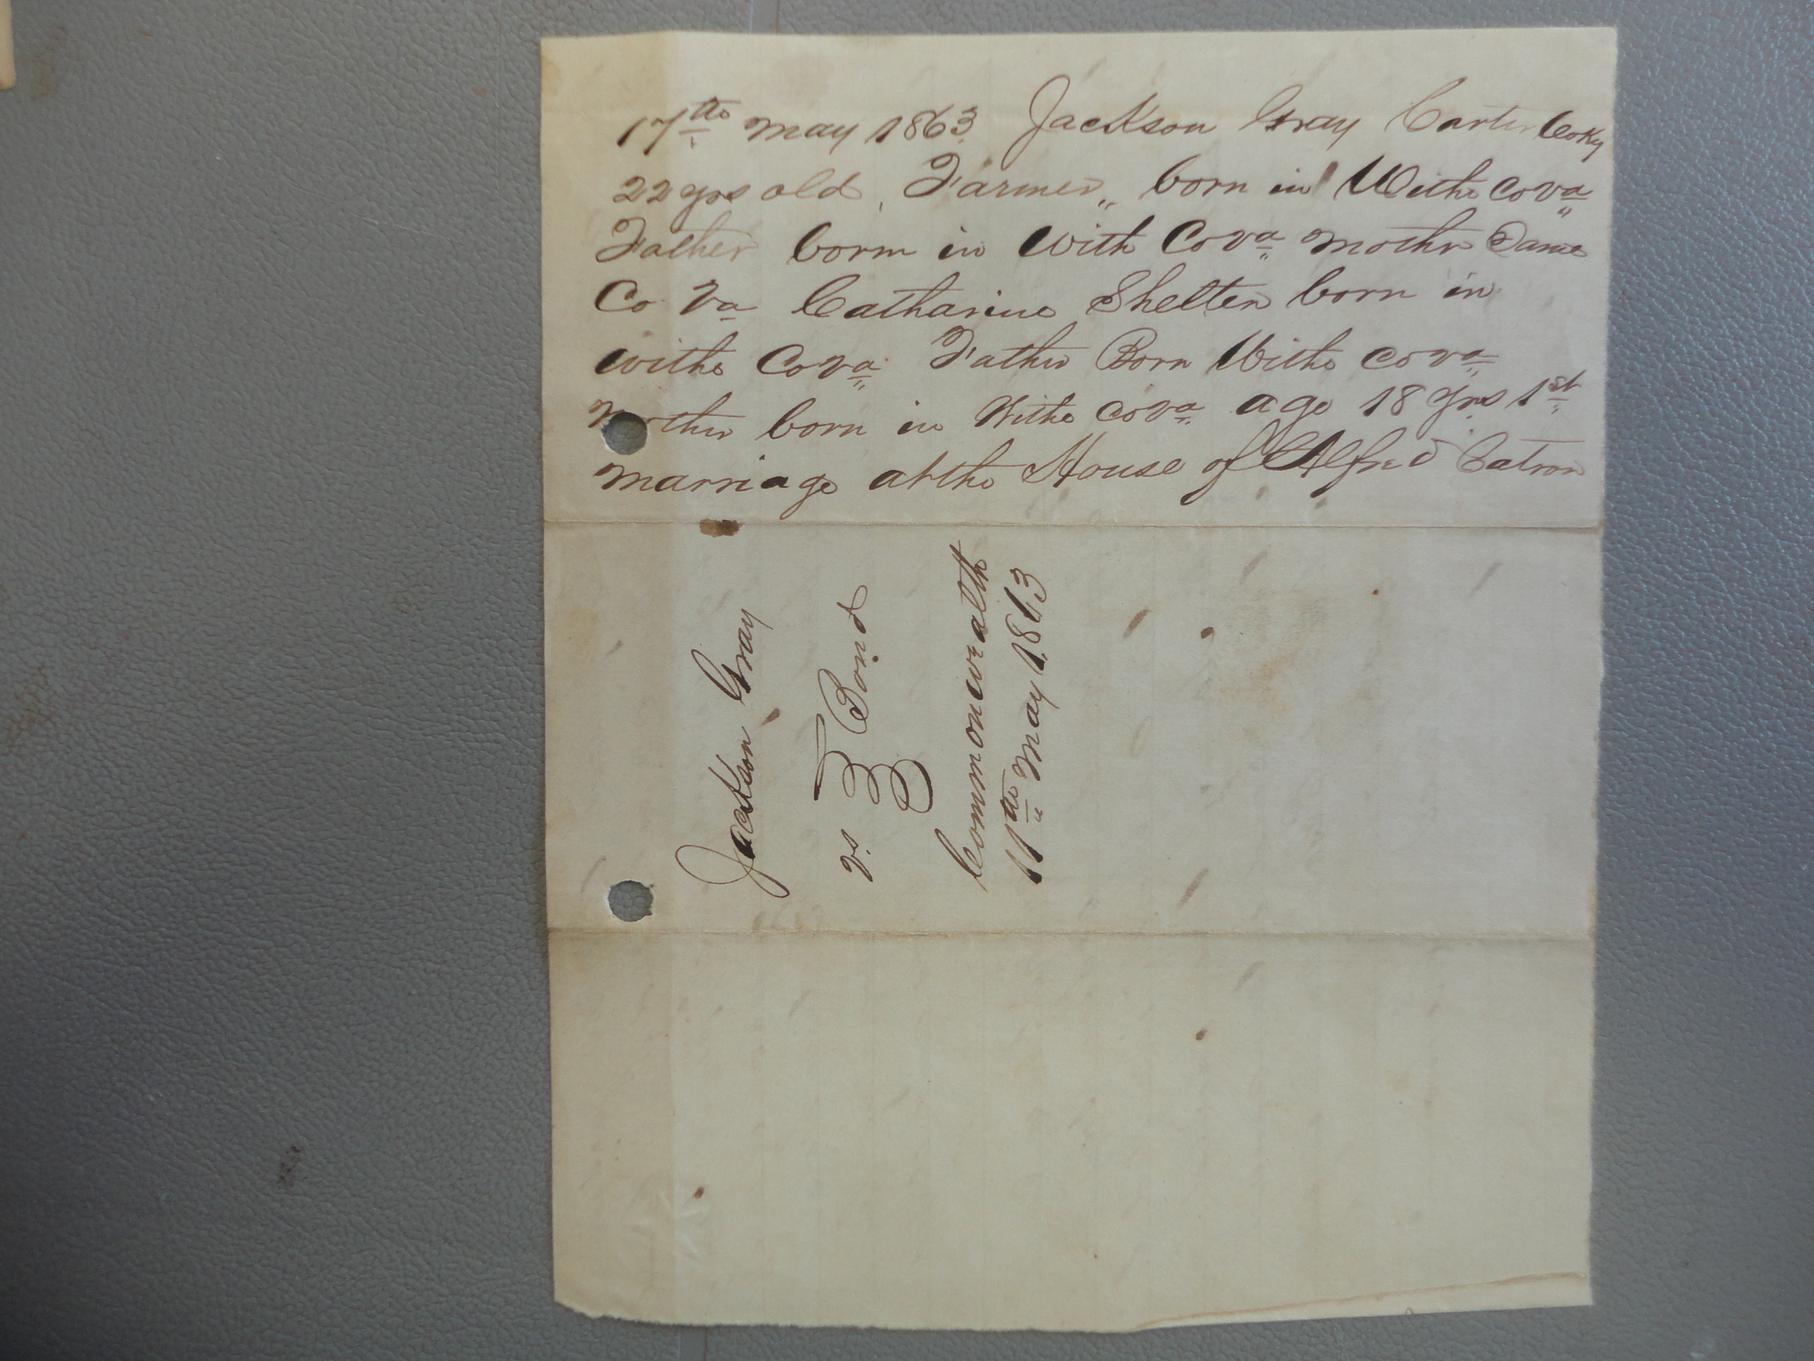 17th May 1863 Jackson Gray Carter Co Ky
22 yrs old, Farmer, born in Withe Co Va
Father born in With Co Va mother Same
Co Va Catharine Shelten born in
withe Co Va Father Born Withe Co Va
Mother born in Withe Co Va age 18 yrs 1st
marriage at the House of Alfred Catron
Jackson Gray
vs. Bond
Commonwealth
11th May 1863